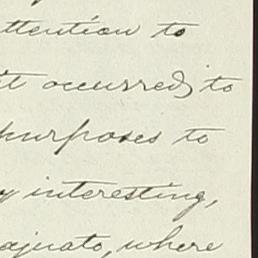 ttention to
it occurred to
purposes to
y interesting,
ajuato, where